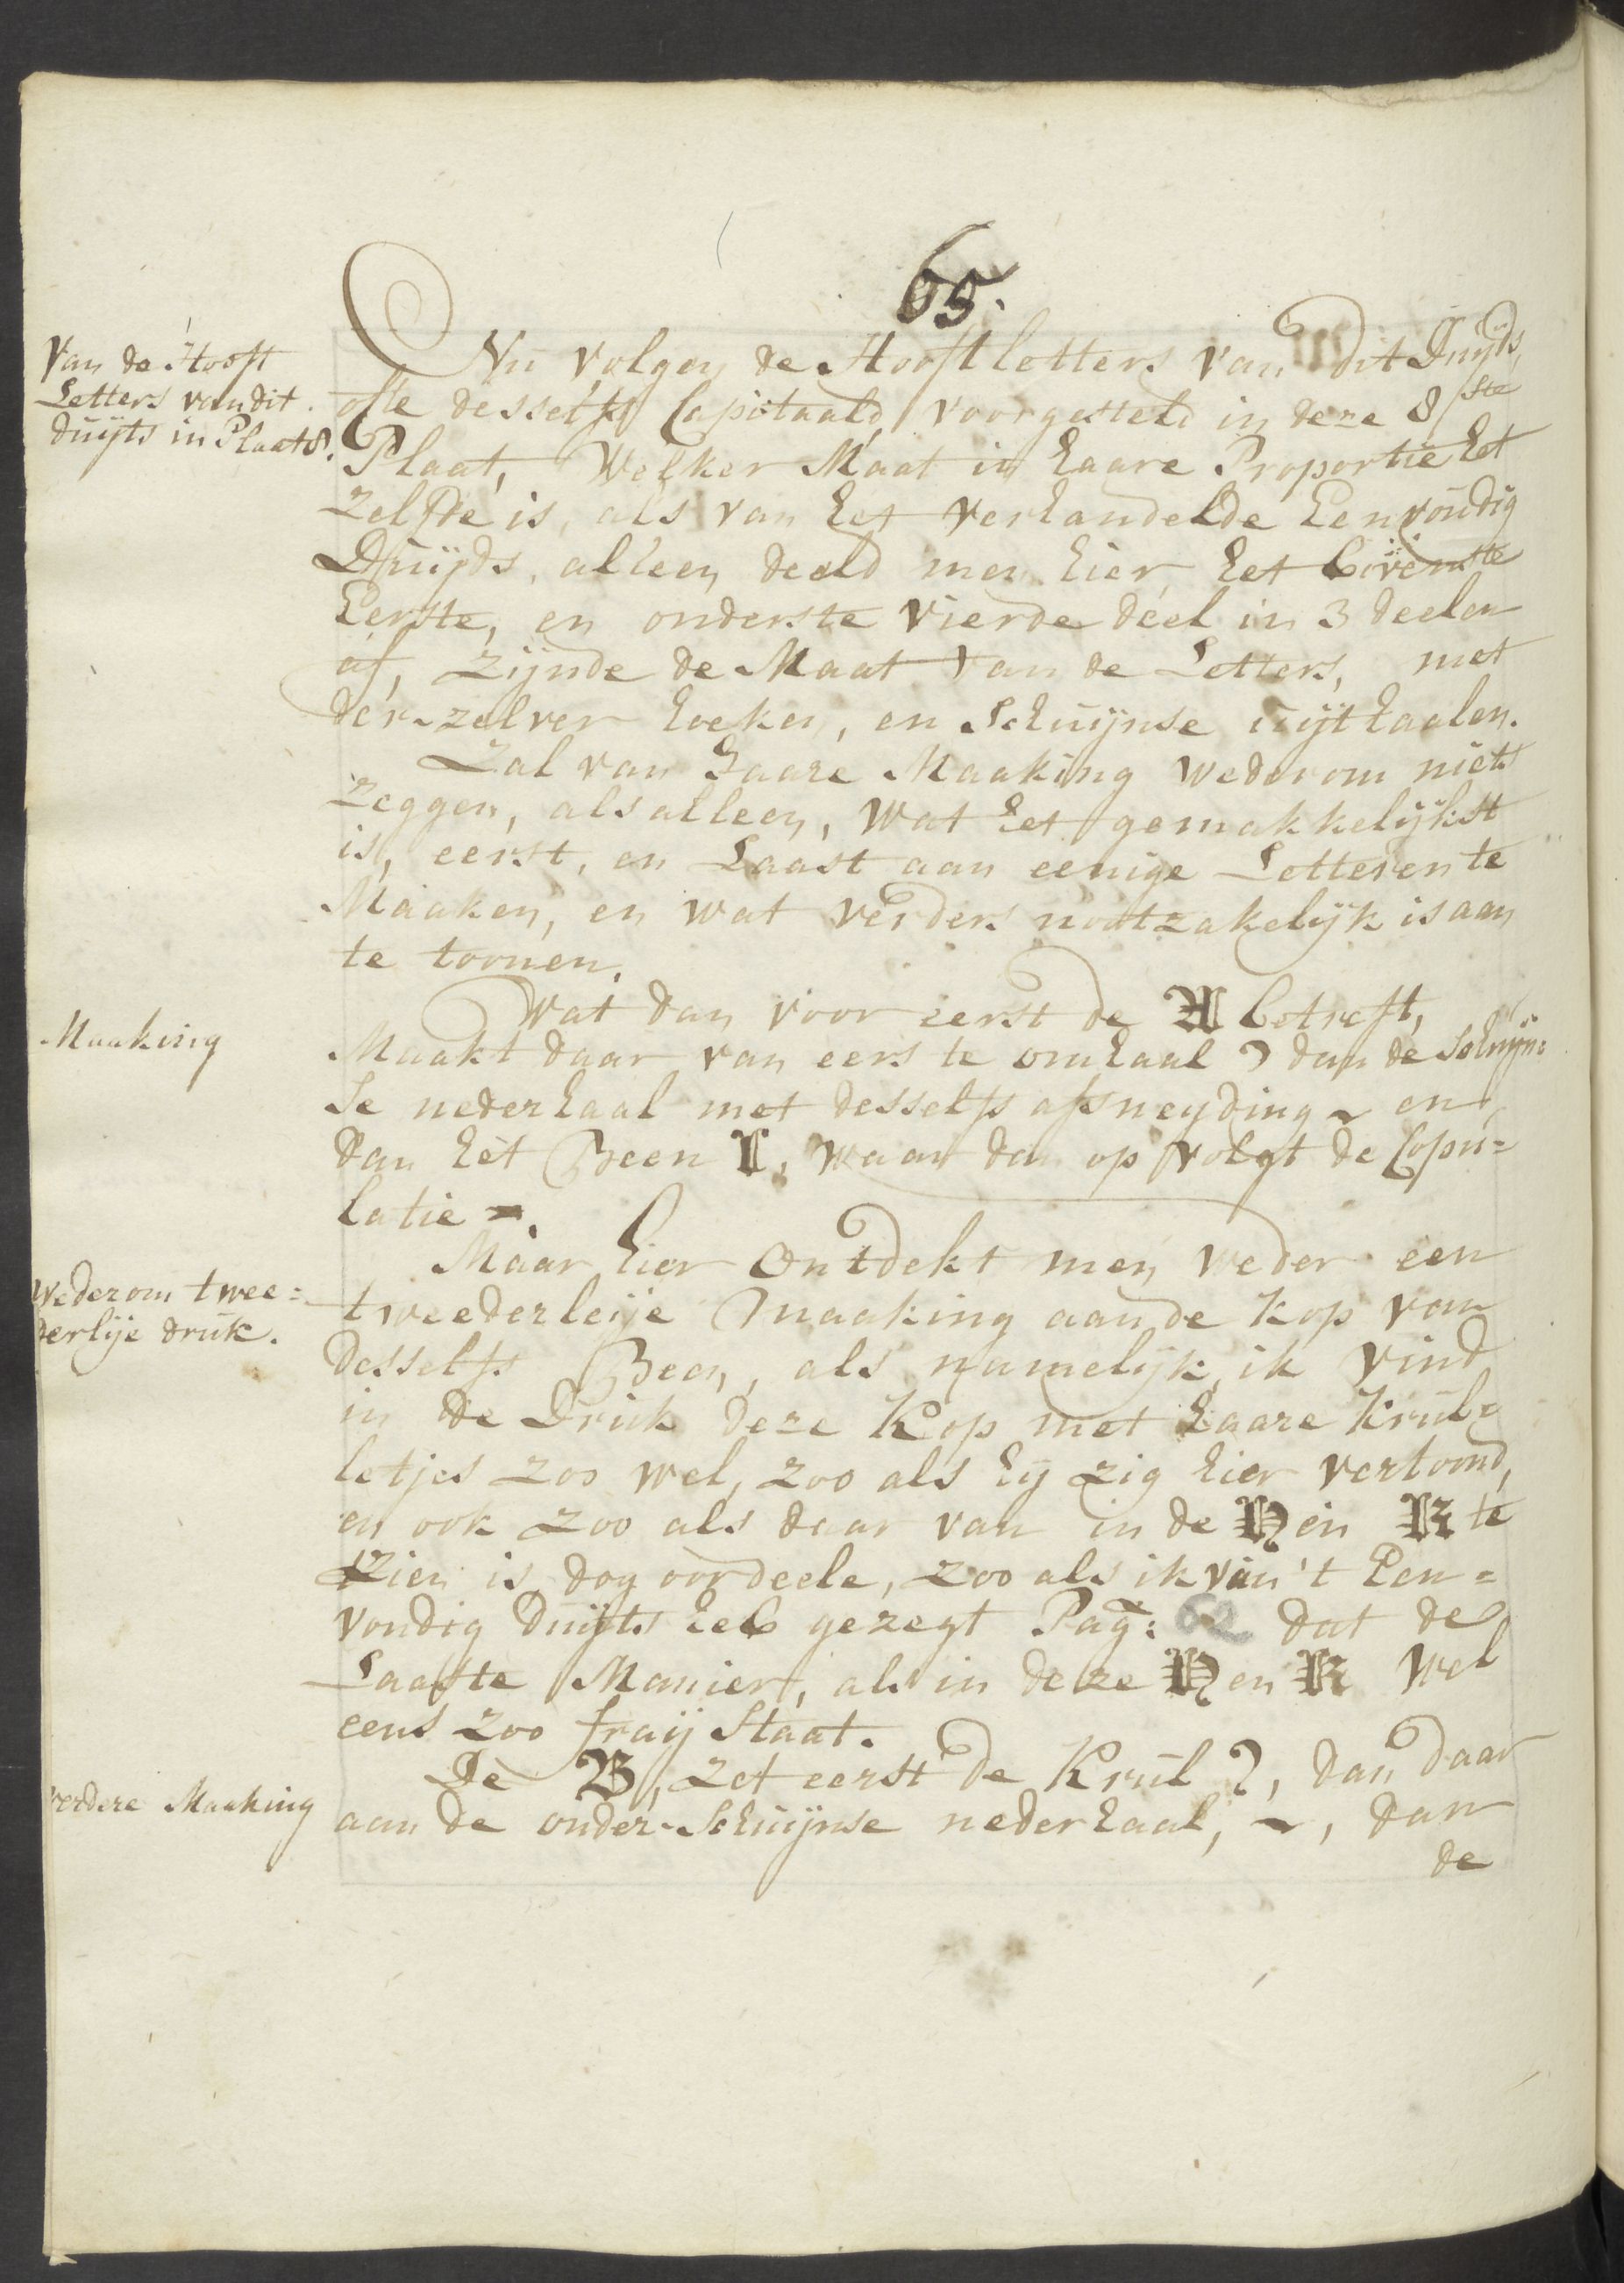 65.
Van de Hooft
Letters van dit
duijts in Plaat 8.
Nu volgen de Hooftletters van dit Duijds,
ofte desselfs Capitaals, voorgesteld in deze 8ste
Plaat, Welker Maat in haare Proportie het
zelfde is, als van het verhandelde Eenvoudig
Duijds, alleen deeld men hier het bovenste
Eerste, en onderste vierde deel in 3 deelen
af, zijnde de Maat van de Letters, met
der-zelver hoeken, en Schuijnse uijthaalen.
Zal van haare Maaking wederom niets
zeggen, als alleen, wat het gemakkelijkst
is, eerst, en Laast aan eenige Letteren te
Maaken, en wat verders nootzakelijk is aan
te toonen.
Maaking
Wat dan voor eerst de A betreft,
Maakt daar van eerst e omhaal ? dan de Schuijn=
se nederhaal met desselfs afsneyding ~ en
dan het Been I, waar dan op volgt de Copu=
latie =.
Wederom twee=
derlije druk.
Maar hier Ontdekt men weder een
tweederleije maaking aan de kop van
desselfs Been, als namelijk, ik vind
in de Druk deze Kop met haare Krul=
letjes zoo wel, zoo als hij zig hier vertoond,
en ook zoo als daar van in de N en R te
zien is, dog oordeele, zoo als ik van 't Een=
voudig Duijts heb gezegt Pag: 62 dat de
Laatste Manier, als in deze N en R wel
eens zoo fraij Staat.
verdere Maaking
De B, zet eerst de Krul ?, dan daar
aan de onder-Schuijnse nederhaal, ~, dan
de